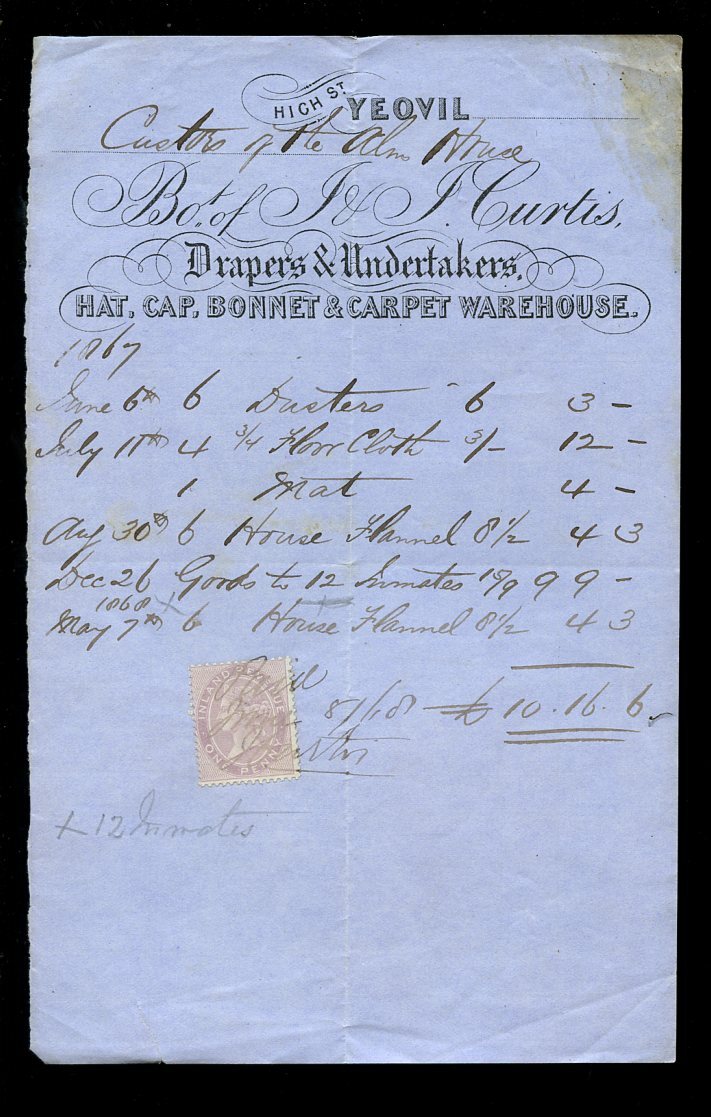 HIGH ST. YEOVIL
Custos of the Alms House
Bot. of J & J. Curtis,
Drapers & Undertakers.
HAT, CAP, BONNET & CARPET WAREHOUSE.
1867
June 6th 6 Dusters 6 3 -
July 11th 4 3/4 Floor Cloth 3/- 12 -
1 Mat 4 -
Aug 30th 6 House Flannel 8 1/2 4 3
Dec 26 Goods to 12 Inmates 15/9 9 9 -
1868 x
May 7th 6 House Flannel 8 1/2 4 3
INLAND REVENUE
ONE PENNY
£ 10 . 16 . 6
Curtis
+ 12 Inmates